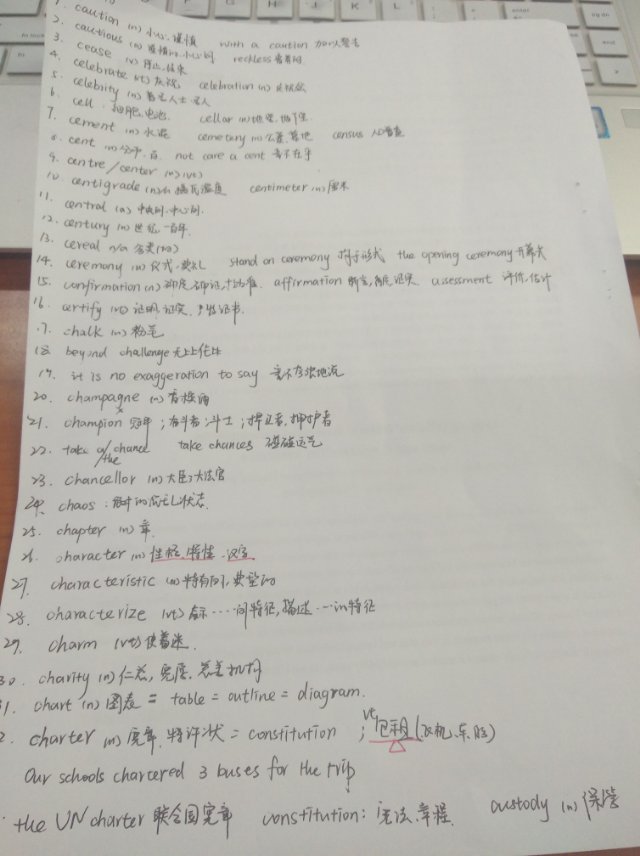 1. caution (n) 小心,谨慎 with a caution 加以警告
2. cautious (a) 谨慎的,小心的 reckless
3. cease (v) 停止,结束
4. celebrate (vt) 庆祝 celebration (n) 庆祝
5. celebrity (n) 著名人士,名人
6. cell 细胞,电池 cellar (n) 地窖,地下室
7. cement (n) 水泥 cemetery (n) 公墓,墓地 census 人口普查
8. cent (n) 分币,百 not care a cent 毫不在乎
9. centre/center (n) (vt)
10. centigrade (n) 摄氏温度 centimeter (n) 厘米
11. central (a) 中央的,中心的
12. century (n) 世纪,一百年
13. cereal n/a 谷类(的)
14. ceremony (n) 仪式,典礼 stand on ceremony 拘于形式 the opening ceremony 开幕式
15. confirmation (n) 确认,批准 affirmation 断言,证实 assessment 评价,估计
16. certify (vt) 证明,证实,发证书
17. chalk (n) 粉笔
18. beyond challenge 无与伦比
19. it is no exaggeration to say 毫不夸张地说
20. champagne (n) 香槟酒
21. champion 冠军;奋斗者,斗士;捍卫者,拥护者
22. take a/the chance take chances 碰碰运气
23. chancellor (n) 大臣;大法官
24. chaos: 混乱状态
25. chapter (n) 章
26. character (n) 性格,特性,汉字
27. characteristic (a) 特有的,典型的
28. characterize (vt) 表示……的特征,描述…的特征
29. charm (vt) 使着迷
30. charity (n) 仁慈,宽厚,慈善机构
31. chart (n) 图表 = table = outline = diagram.
2. charter (n) 宪章,特许状 = constitution ; vt 包租(飞机,车,船)
Our schools chartered 3 buses for the trip
the UN charter 联合国宪章 constitution: 宪法,章程. custody (n) 保管